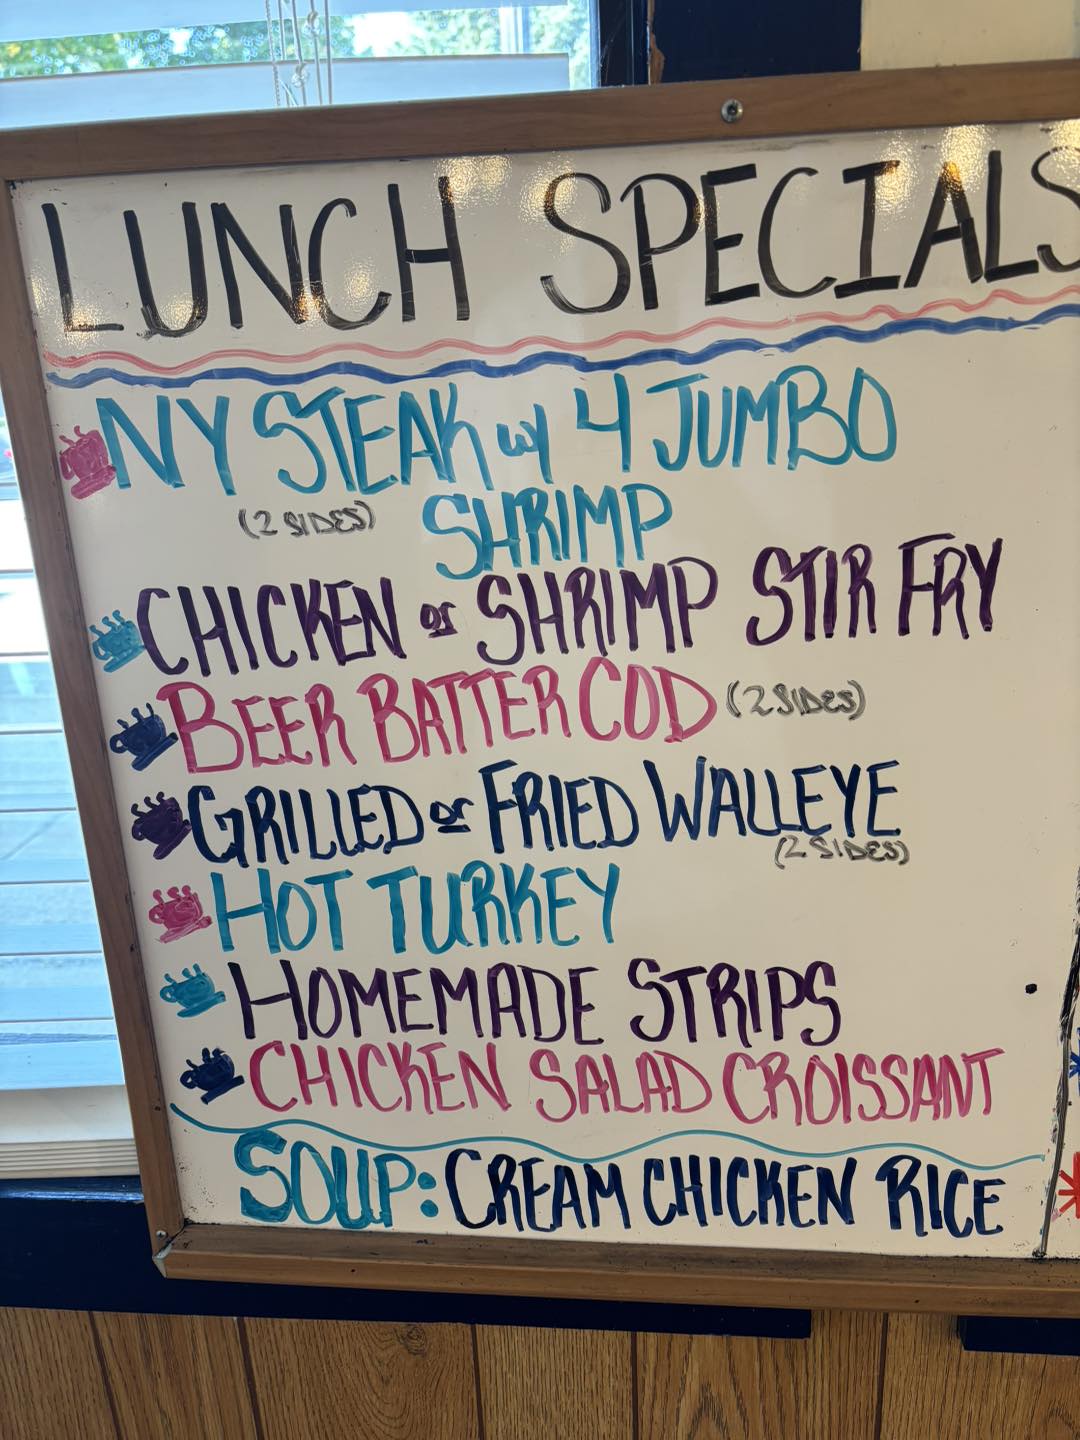 LUNCH SPECIALS
NY STEAK w/ 4 JUMBO
(2 SIDES) SHRIMP
CHICKEN or SHRIMP STIR FRY
BEER BATTER COD (2 SIDES)
GRILLED or FRIED WALLEYE
(2 SIDES)
HOT TURKEY
HOMEMADE STRIPS
CHICKEN SALAD CROISSANT
SOUP: CREAM CHICKEN RICE